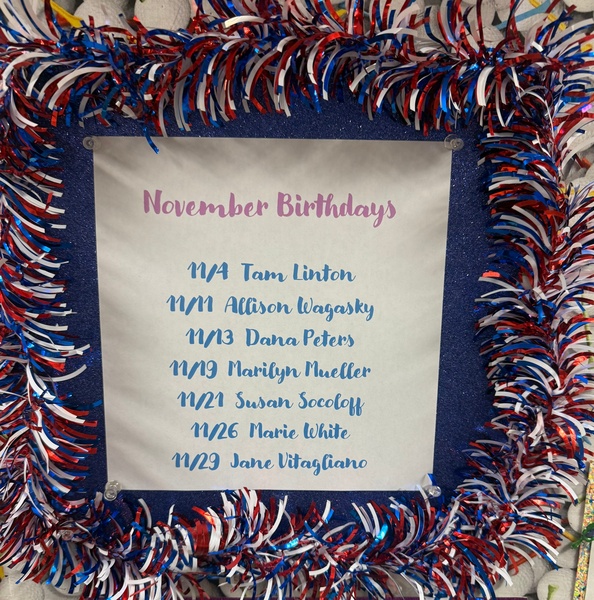 November Birthdays
11/4 Tam Linton
11/11 Allison Wagasky
11/13 Dana Peters
11/19 Marilyn Mueller
11/21 Susan Socoloff
11/26 Marie White
11/29 Jane Vitagliano